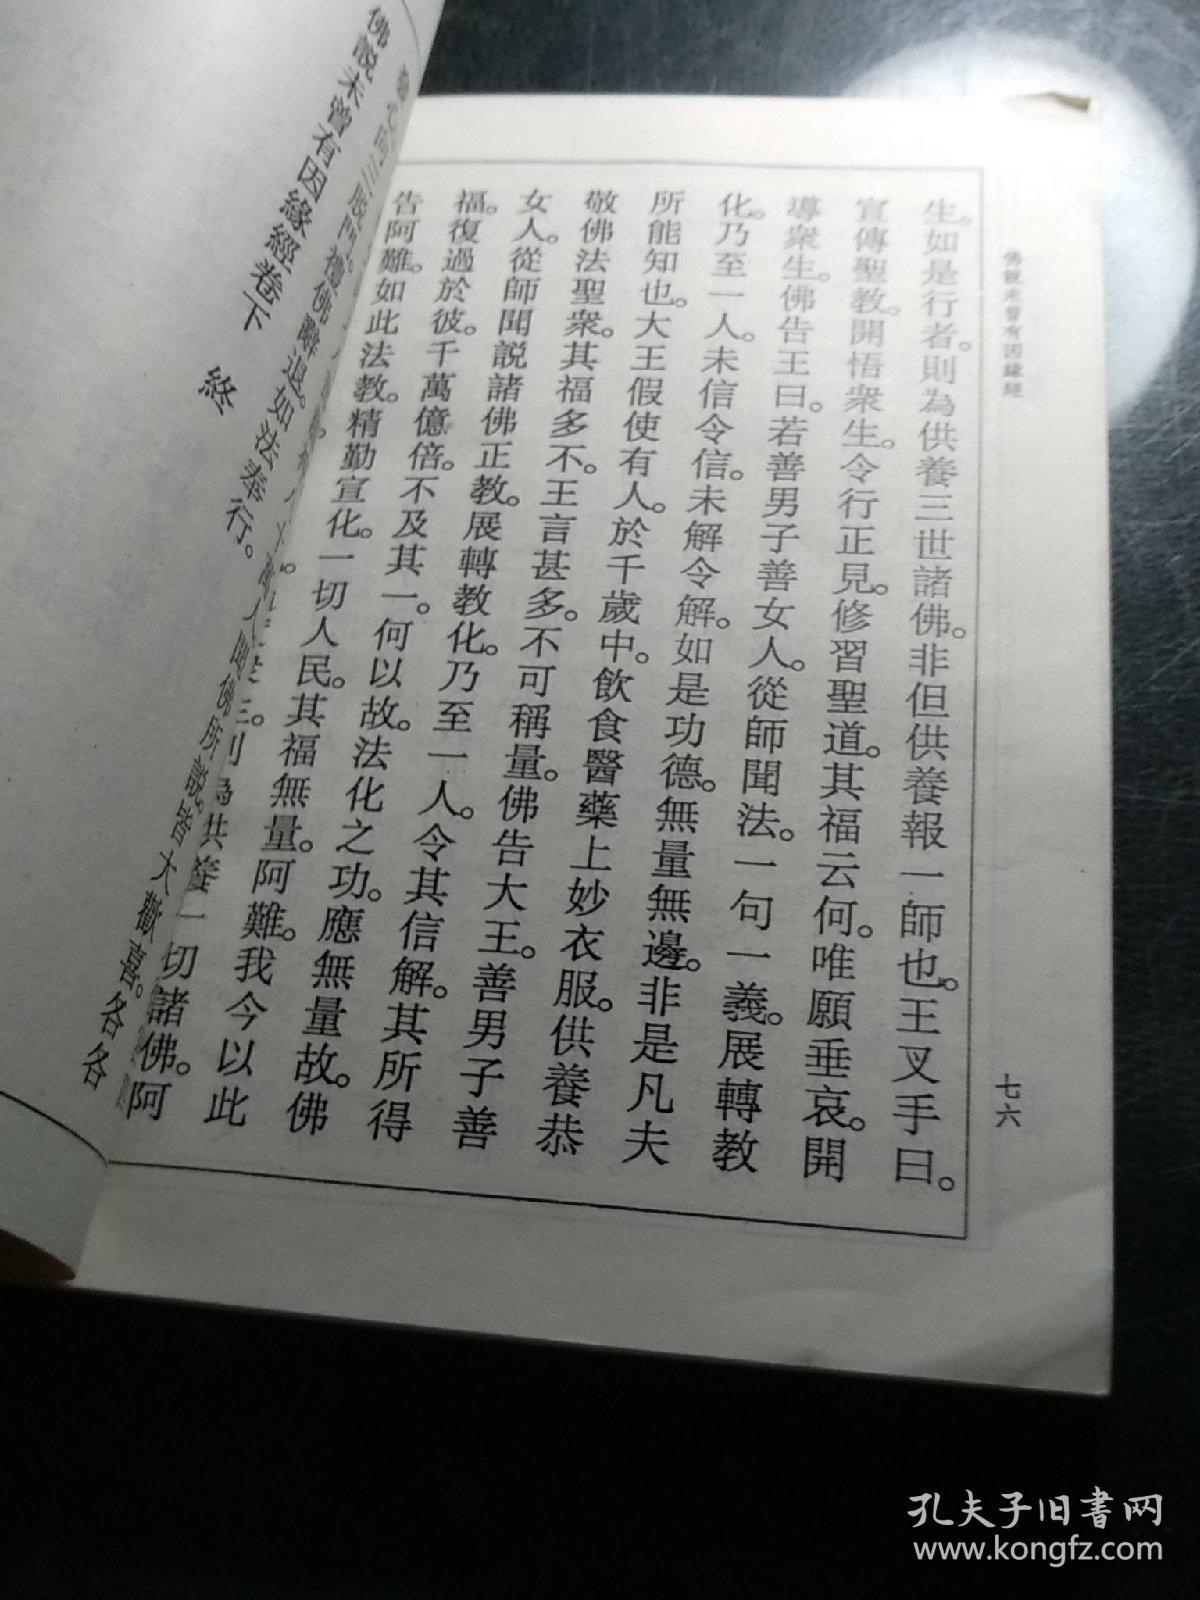 佛說未曾有因緣經
七六
生。如是行者。則為供養三世諸佛。非但供養報一師也。王叉手曰。
宣傳聖教。開悟衆生。令行正見。修習聖道。其福云何。唯願垂哀。開
導衆生。佛告王曰。若善男子善女人。從師聞法。一句一義。展轉教
化。乃至一人。未信令信。未解令解。如是功德。無量無邊。非是凡夫
所能知也。大王假使有人。於千歲中。飲食醫藥上妙衣服。供養恭
敬佛法聖衆。其福多不。王言甚多。不可稱量。佛告大王。善男子善
女人。從師聞說諸佛正教。展轉教化。乃至一人。令其信解。其所得
福。復過於彼。千萬億倍。不及其一。何以故。法化之功。應無量故。佛
告阿難。如此法教。精勤宣化。一切人民。其福無量。阿難。我今以此
為供養一切諸佛。阿
禮佛辭退。如法奉行。
人聞佛所說。皆大歡喜。各各
佛說未曾有因緣經卷下 終
孔夫子旧书网
www.kongfz.com